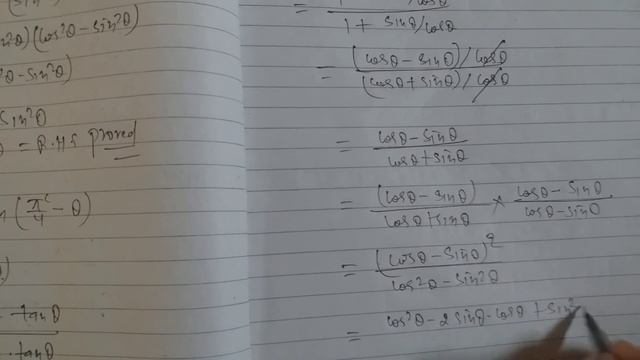 ²θ)(cos²θ - sin²θ)
²θ - sin²θ)
sin²θ
= R.H.S proved
(π^c/4 - θ)
- tanθ
. tanθ
1 + sinθ/cosθ
= (cosθ - sinθ)/cosθ
(cosθ + sinθ)/cosθ
= cosθ - sinθ
cosθ + sinθ
= (cosθ - sinθ) × cosθ - sinθ
cosθ + sinθ cosθ - sinθ
= (cosθ - sinθ)²
cos²θ - sin²θ
= cos²θ - 2 sinθ · cosθ + sin²